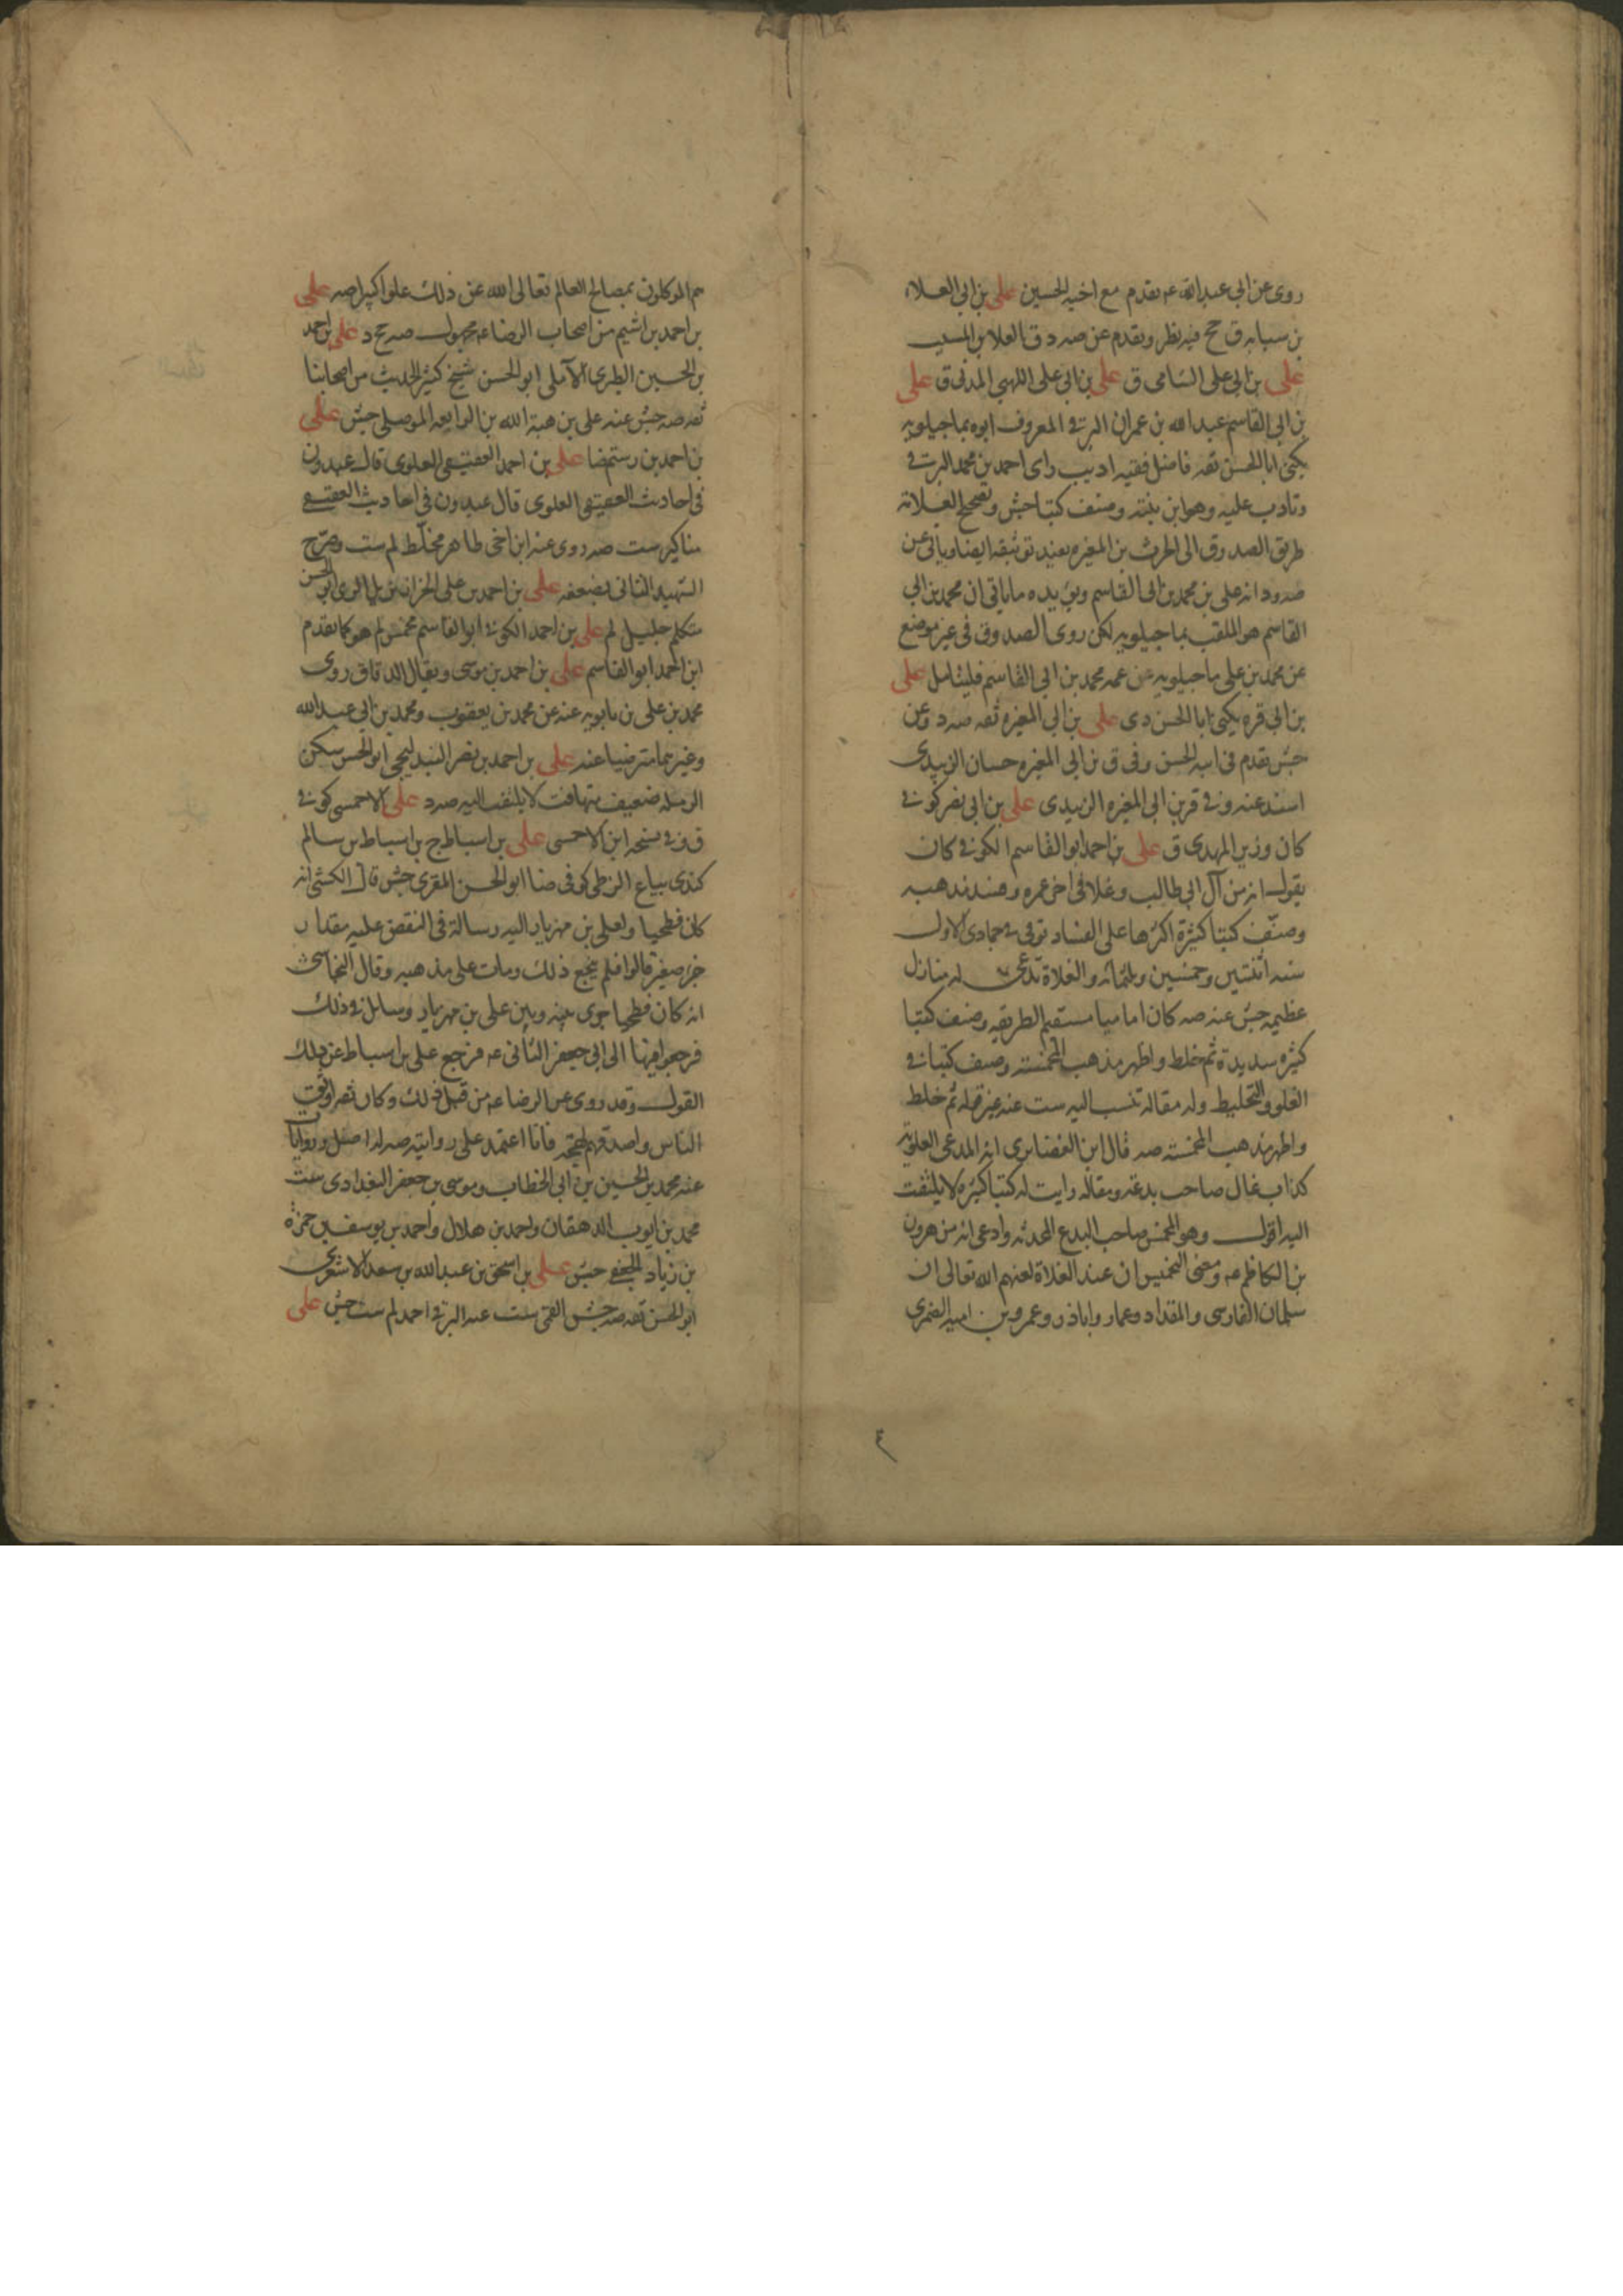 روى عن ابى عبدالله عه تقدم مع اخيه الحسين على بن ابى العلاء
بن سيابه ق حج فيه نظر وتقدم عن صه د ق العلا بن المسيب
على بن ابى على الشامى ق على بن ابى على اللهبى المدنى ق على
بن ابى القاسم عبدالله بن عمران البرقى المعروف ابوه بماجيلويه
يكنى ابا الحسن ثقه فاضل فقيه اديب راى احمد بن محمد البرقى
وتادب عليه وهو ابن بنته وصنف كتبا جش وتصحيح العلامة
طريق الصدوق الى الحرث بن المغيره يفيد توثيقه ايضا وياتى عن
صه ود انه على بن محمد بن ابى القاسم ويؤيده ماياتى ان محمد بن ابى
القاسم هو الملقب بماجيلويه لكن روى الصدوق فى غير موضع
عن محمد بن على ماجيلويه عن عمه محمد بن ابى القاسم فليتامل على
بن ابى قره يكنى ابا الحسن دى على بن ابى المغيره ثقه صه د وعن
جش تقدم فى ابنه الحسن وفى ق بن ابى المغيره حسان الزبيدى
اسند عنه وفى قر بن ابى المغيره الزبيدى على بن ابى نصر كوفى
كان وزير المهدى ق على بن احمد ابو القاسم الكوفى كان
يقول انه من آل ابى طالب وغلا فى اخر عمره وفسد مذهبه
وصنف كتبا كثيرة اكثرها على الفساد توفى فى جمادى الاول
سنه اثنتين وخمسين وثلثمائه والغلاة تدعى له منازل
عظيمه جش عنه صه كان اماميا مستقيم الطريقه وصنف كتبا
كثيره سديدة ثم خلط واظهر مذهب المخمسه وصنف كتبا فى
الغلو والتخليط وله مقاله تنسب اليه ست عنه غير قوله ثم خلط
واظهر مذهب المخمسه صه قال ابن الغضايرى انه المدعى العلويه
كذاب غال صاحب بدعه ومقاله رايت له كتبا كثيره لا يلتفت
اليه اقول وهو المخمس صاحب البدع المحدثه وادعى انه من هرون
بن الكاظم عه ومعنى التخميس ان عند الغلاة لعنهم الله تعالى ان
سلمان الفارسى والمقداد وعمار واباذر وعمرو بن اميه الضمرى
هم الموكلون بمصالح العالم تعالى الله عن ذلك علوا كبيرا صه على
بن احمد بن اشيم من اصحاب الرضا عه مجهول صه حج د على بن احمد
بن الحسين الطبرى الآملى ابو الحسن شيخ كثير الحديث من اصحابنا
ثقه صه جش عنه على بن هبة الله بن الرايعه الموصلى جش على
بن احمد بن رستم ضا على بن احمد العقيقى العلوى قال عبدون
فى احاديث العقيقى العلوى قال عبدون فى احاديث العقيقى
مناكير ست صه روى عنه ابن اخى طاهر مخلط لم ست وصرح
الشهيد الثانى بضعفه على بن احمد بن على الخزاز نزيل الرى ابو الحسن
متكلم جليل لم على بن احمد الكوفى ابو القاسم مخمس لم هو كما تقدم
ابن احمد ابو القاسم على بن احمد بن موسى ويقال الدقاق روى
محمد بن على بن بابويه عنه عن محمد بن يعقوب ومحمد بن ابى عبدالله
وغيرهما مترضيا عنه على بن احمد بن نصر البندليجى ابو الحسن سكن
الرمله ضعيف متهافت لا يلتفت اليه صه د على الاحمسى كوفى
ق وفى نسخه ابن الاحمسى على بن اسباط ج بن اسباط بن سالم
كندى بياع الزطى كوفى ضا ابو الحسن المقرى جش قال الكشى انه
كان فطحيا ولعلى بن مهزيار اليه رسالة فى النقض عليه مقدار
جزء صغير قالوا فلم ينجع ذلك ومات على مذهبه وقال النجاشى
انه كان فطحيا جرى بينه وبين على بن مهزيار رسائل فى ذلك
فرجعوا فيها الى ابى جعفر الثانى عه فرجع على بن اسباط عن ذلك
القول وقد روى عن الرضا عه من قبل ذلك وكان ثقه اوثق
الناس واصدقهم لهجة فانا اعتمد على روايته صه له اصل وروايات
عنه محمد بن الحسين بن ابى الخطاب وموسى بن جعفر البغدادى ست
محمد بن ايوب الدهقان واحمد بن هلال واحمد بن يوسف بن حمزة
بن زياد الجعفى جش على بن اسحق بن عبدالله بن سعد الاشعرى
ابو الحسن ثقه صه جش القمى ست عنه البرقى احمد لم ست جش على